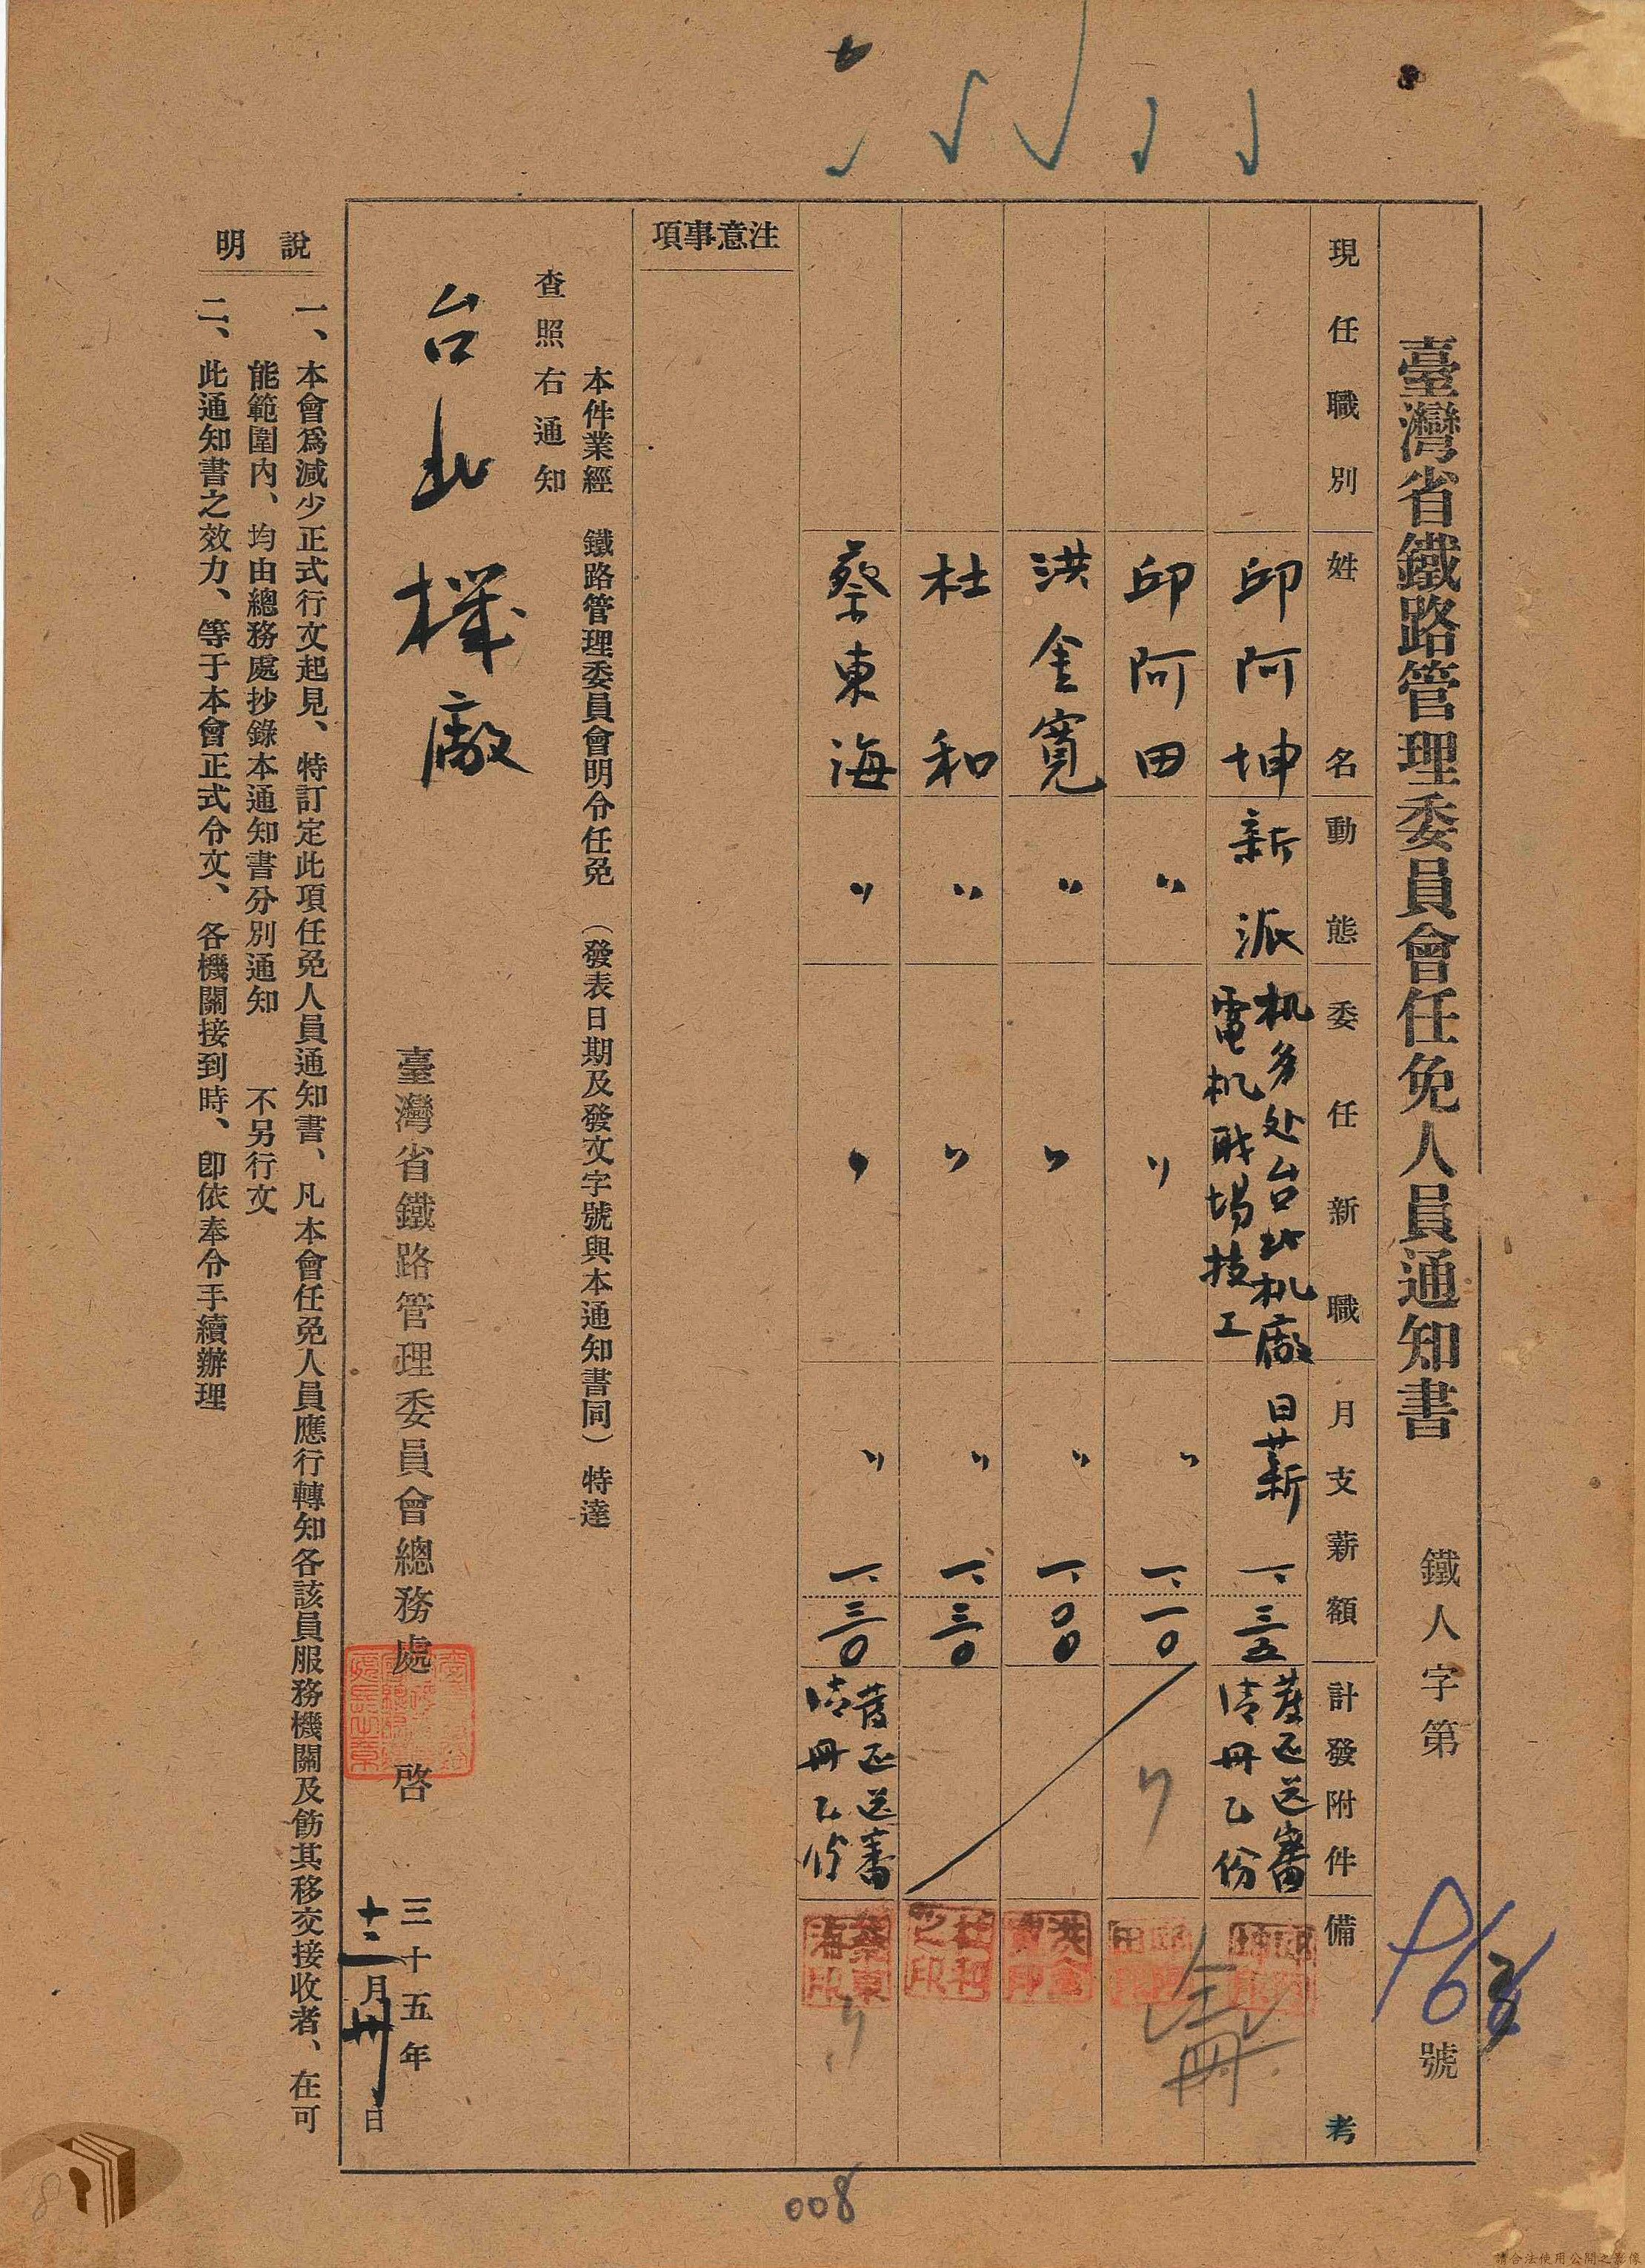 臺灣省鐵路管理委員會任免人員通知書
鐵人字第
號
現任職別
姓名
動態
委任新職
月支薪額
計發附件
備考
邱阿坤
新派
机务处台北机廠
電机职場技工
日薪
一、三五
薦送審
清冊乙份
邱阿田
〃
〃
〃
一、一〇
〃
洪金寬
〃
〃
〃
一、〇〇
杜和
〃
〃
〃
一、三〇
蔡東海
〃
〃
〃
一、三〇
清冊乙份
注意事項
本件業經 鐵路管理委員會明令任免(發表日期及發文字號與本通知書同)特達
查照右通知
台北機廠
臺灣省鐵路管理委員會總務處 啓
三十五年
十二月卅日
說明
一、本會爲減少正式行文起見、特訂定此項任免人員通知書、凡本會任免人員應行轉知各該員服務機關及飭其移交接收者、在可
能範圍内、均由總務處抄錄本通知書分別通知 不另行文
二、此通知書之效力、等于本會正式令文、各機關接到時、卽依奉令手續辦理
杜和之印
蔡東海印
008
8
請合法使用公開之影像